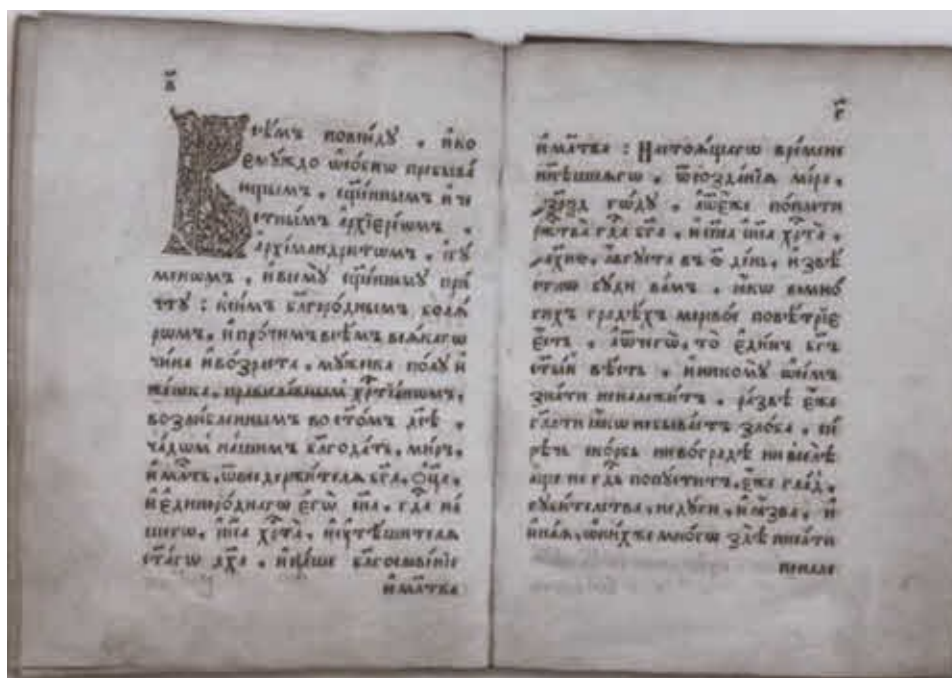 всѣмъ повсю́дꙋ , и҆ ко
емꙋ́ждо ѡ҆со́бнѡ пребыва́
ющымъ , сщ҃е́ннымъ и҆ че
стны́мъ а҆рхїере́ѡмъ ,
а҆рхїмандри́тѡмъ , и҆гꙋ́
менѡмъ , и҆ всемꙋ̀ сщ҃е́нномꙋ при́
чтꙋ : и҆ всѣ̑мъ бл҃горо́днымъ болѧ́
рѡмъ , и҆ про́чимъ всѣ̑мъ всѧ́кагѡ
чи́на и҆ во́зраста , мꙋ́жеска по́лꙋ и҆
же́нска , правосла́внымъ хрⷭ҇тїа́нѡмъ ,
возлю́бленнымъ во ст҃о́мъ дс҃ѣ ,
ча́дѡмъ на́шымъ бл҃года́ть , ми́ръ ,
и҆ млⷭ҇ть , ѿ вседержи́телѧ бг҃а , ѻ҆ц҃а̀ ,
и҆ є҆диноро́днагѡ є҆гѡ̀ сн҃а , гдⷭ҇а на́
шегѡ , і҆и҃са хрⷭ҇та̀ , и҆ ᲂу҆тѣ́шителѧ
ст҃а́гѡ дх҃а , и҆ на́ше бл҃гослове́нїе
и҆ мл҃тва
и҆ мл҃тва : Настоѧ́щагѡ вре́мене
ны́нѣшнѧгѡ , ѿ созда́нїѧ мі́ра ,
҂зрѯд го́дꙋ , а҆ ѿ є҆́же по пло́ти
ржⷭ҇тва̀ гдⷭ҇а бг҃а , и҆ сп҃са і҆и҃са хрⷭ҇та̀ ,
а҆́вгꙋста въ ѳ҃ де́нь , и҆звѣ́
стно бꙋ́ди ва́мъ , ꙗ҆́кѡ во мно́
гихъ градѣ́хъ мо́рвое повѣ́трїе
є҆́сть , а҆ ѿ негѡ̀ , то̀ є҆ди́нъ бг҃ъ
ст҃ы́й вѣ́сть , и҆ никомꙋ̀ ѡ҆ се́мъ
зна́ти не належи́тъ . ра́звѣ є҆́же
глаго́лати ꙗ҆́кѡ не быва́етъ ѕло́ба , си́
рѣчь ско́рбь ни во гра́дѣ ни в селѣ̀
а҆́ще не гдⷭ҇ь попꙋ́ститъ , є҆́же гла́д ,
недꙋ́ги , и҆ ꙗ҆́зва , и҆
и҆на́ѧ , ѡ҆ ни́хже мно́гѡ здѣ̀ писа́ти
не нале